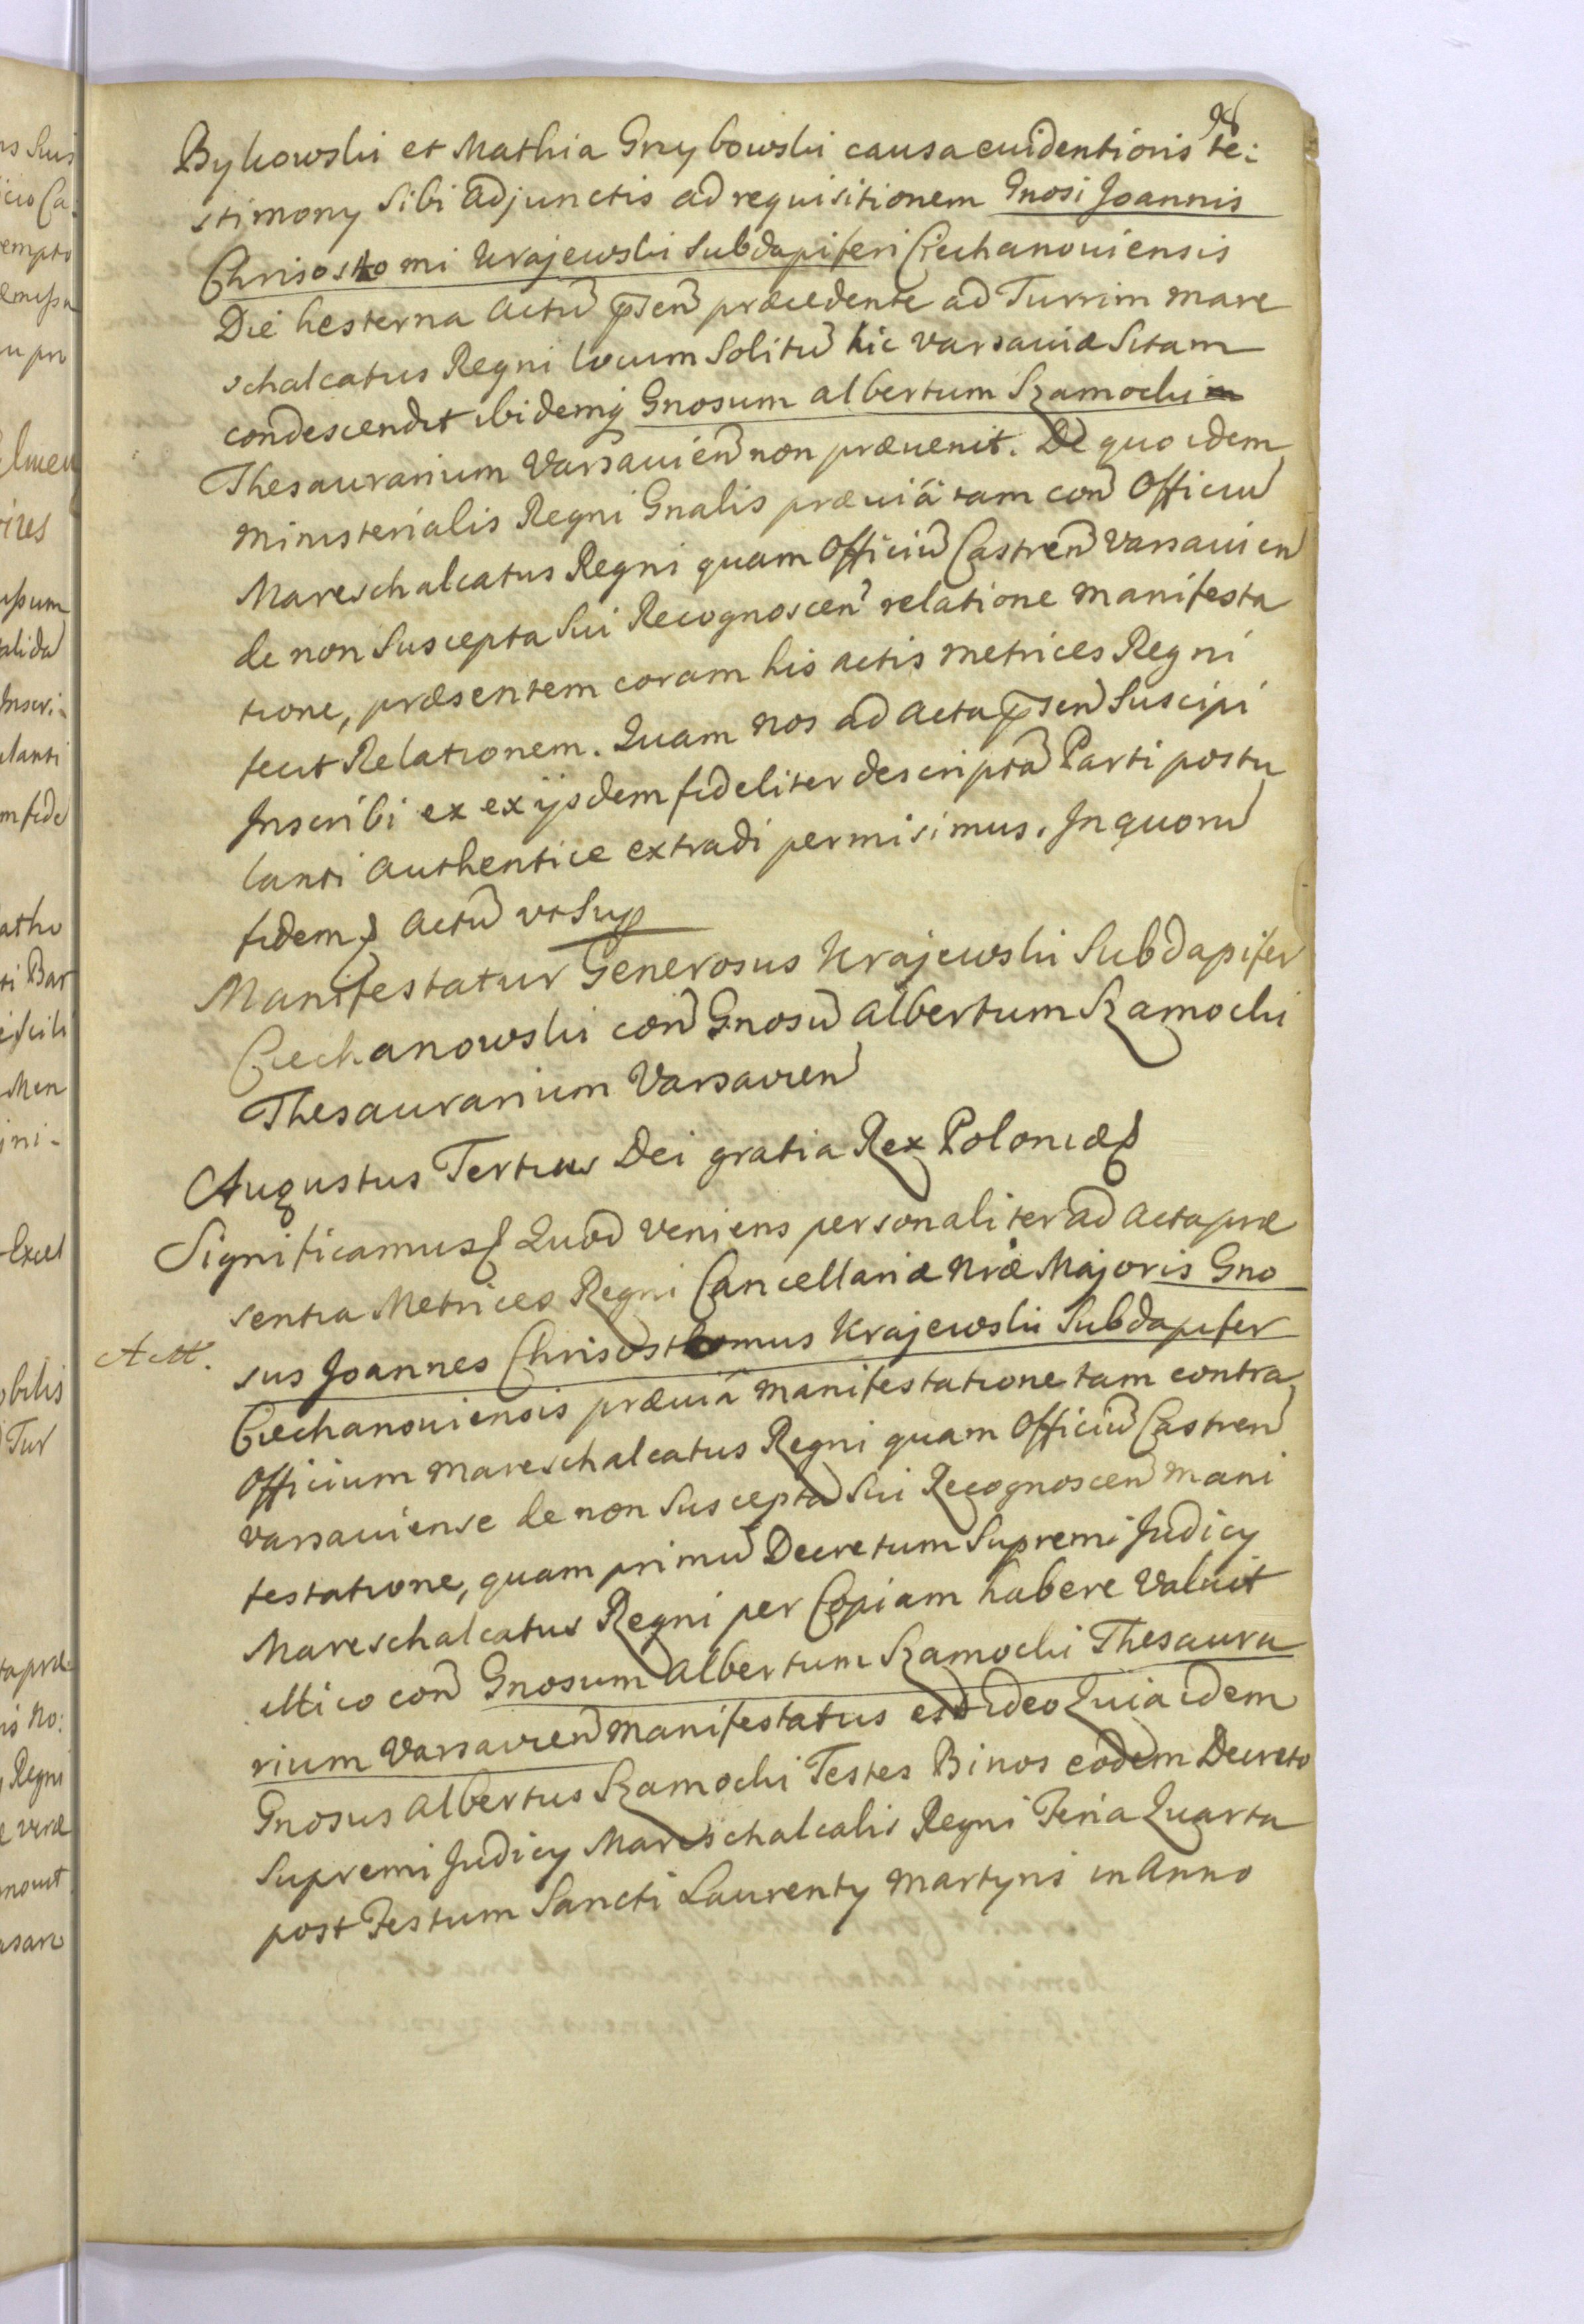 98
Bykowski et Mathia Grzybowski causa euidentioris te:
stimony sibi adjunctis ad requisitionem Gnosi Joannis
Chrisostomi Krajewski Subdapiferi Ciechanouiensis
Die hesterna Actũ pr̃sen̄ præcedente ad Turrim mare
schalcatus Regni locum Solitũ hic Varsauiæ Sitam
condescendit ibidemq̃ Gnosum Albertum Szamocki
Thesaurarium Varsauien̄ non præuenit. De quo idem
Ministerialis Regni Gnalis præuiâ tam con̄ Officiũ
Mareschalcatus Regni quam Officiũ Castren̄ Varsauien̄
de non Suscepta Sui Recognoscen̄ relatione manifesta
tione, præsentem coram his actis Metrices Regni
fecit Relationem. Quam nos ad Acta pr̃sen̄ Suscipi
Inscribi et ex ijsdem fideliter descriptã Parti postu
lanti Authentice extradi permisimus. In quorũ
fidem Actũ vt Sup
Manifestatur Generosus Krajewski Subdapifer
Ciechanowski con̄ Gnosũ Albertum Szamocki
Thesaurarium Varsavien̄
Augustus Tertius Dei gratia Rex Poloniæ
Significamus Quod veniens personaliter ad Acta præ
sentia Metrices Regni Cancellariæ Nr̃æ Majoris Gno
sus Joannes Chrisosthomus Krajewski Subdapifer
Ciechanouiensis præuiâ manifestatione tam contra
Officium Mareschalcatus Regni quam Officiũ Castren̄
Varsauiense de non Suscepta Sui Recognoscen̄ mani
festatione, quam primũ Decretum Supremi Judicy
Mareschalcatus Regni per Copiam habere Valuit
illico con̄ Gnosum Albertum Szamocki Thesaura
rium Varsavien̄ manifestatus est ideo Quia idem
Gnosus Albertus Szamocki Testes Binos eodem Decreto
Supremi Judicy Mareschalcalis Regni Feria Quarta
post Festum Sancti Laurenty Martyris in Anno